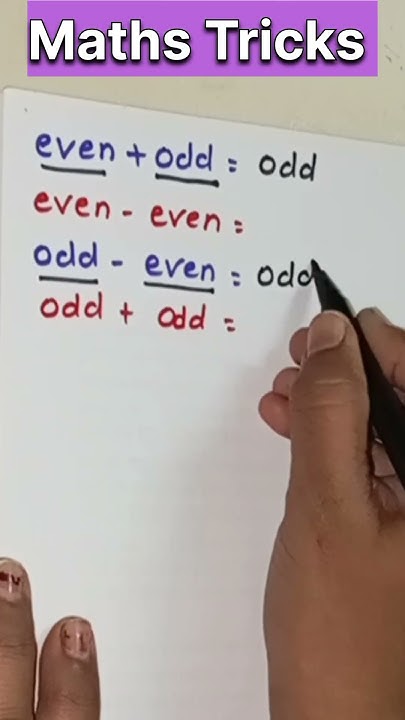 Maths Tricks
even + odd = odd
even - even =
odd - even = odd
odd + odd =